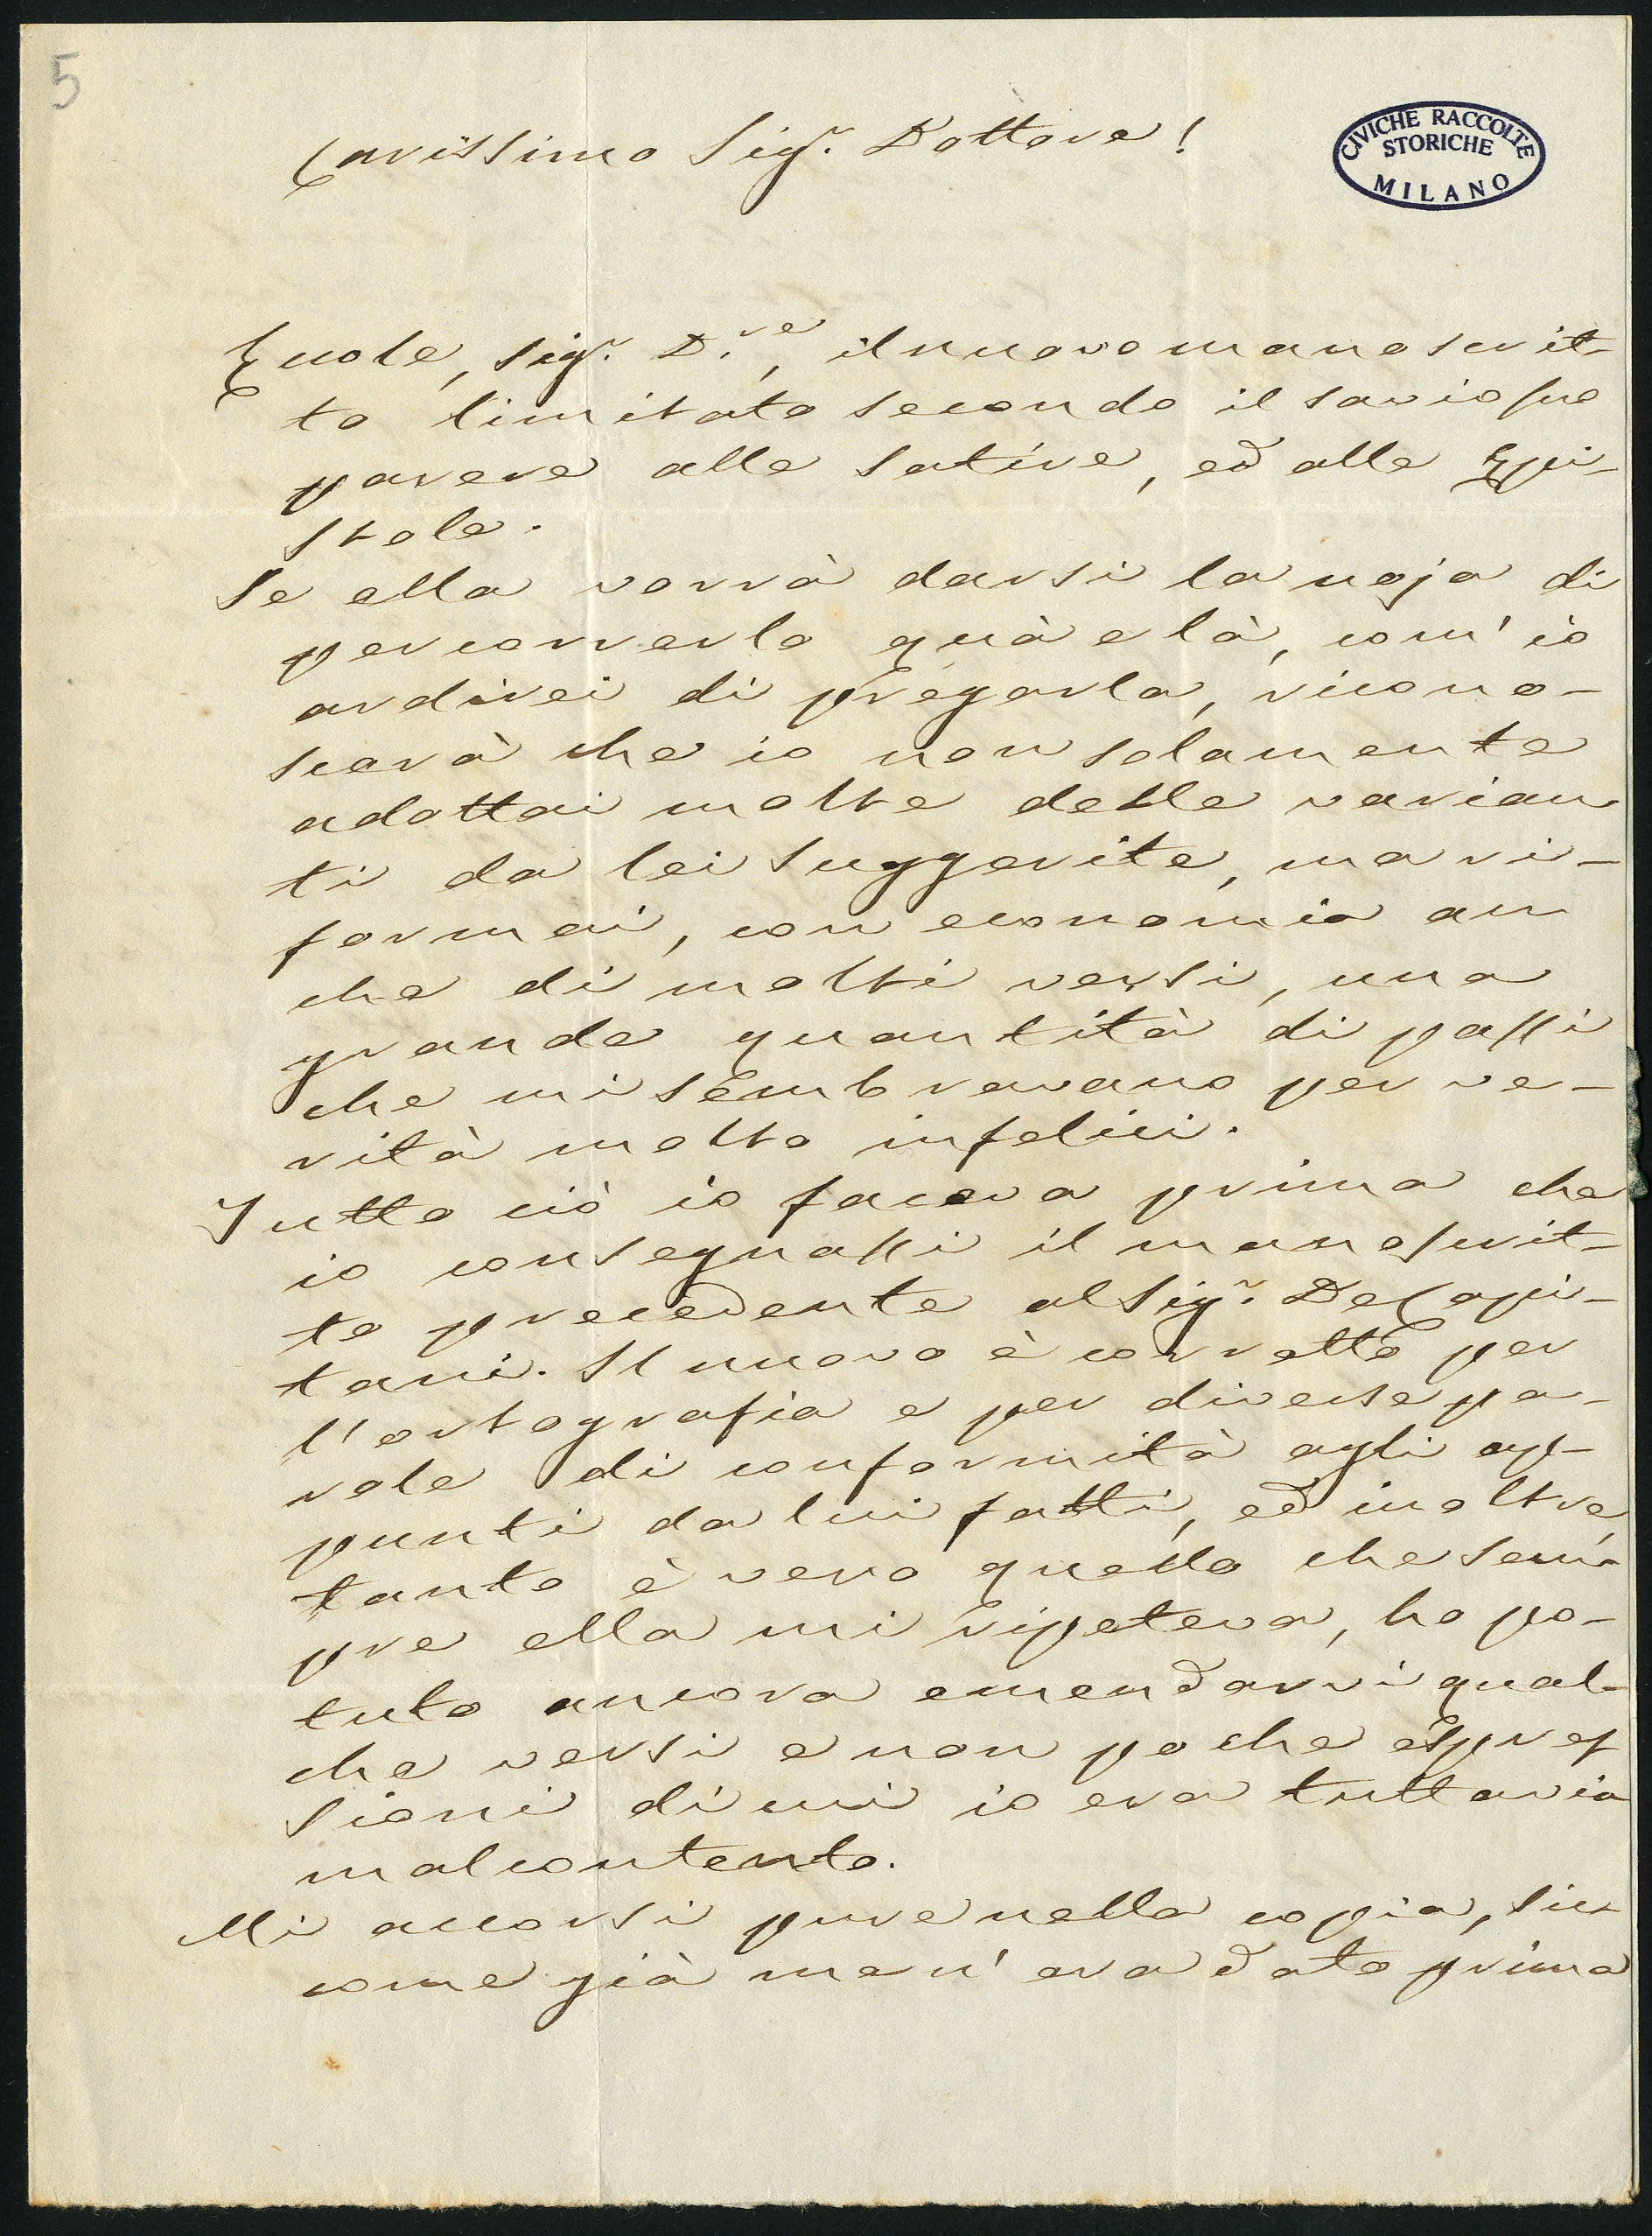 5
CIVICHE RACCOLTE
STORICHE
MILANO
Carissimo Sigr. Dottore!
Eccole, Sigr. D.re, il nuovo manoscrit-
to limitato secondo il savio suo
parere alle Satire, ed alle Epi-
stole.
Se ella vorrà darsi la noja di
percorrerlo quà e là, com' io
ardirei di pregarla, ricono-
scerà che io non solamente
adottai molte delle varian-
ti da lei suggerite, ma ri-
formai, con economia an
che di molti versi, una
grande quantità di passi
che mi sembravano per ve-
rità molto infelici.
Tutto ciò io faceva prima che
io consegnassi il manoscrit-
to precedente al Sigr. DeCapi-
tani. Il nuovo è corretto per
l'ortografia e per diverse pa-
role di conformità agli ap-
punti da lui fatti, ed inoltre,
tanto è vero quello che sem-
pre ella mi ripeteva, ho po-
tuto ancora emendarvi qual-
che versi e non poche espres
sioni di cui io era tuttavia
malcontento.
Mi accorsi pure nella copia, sic-
come già me n' era dato prima